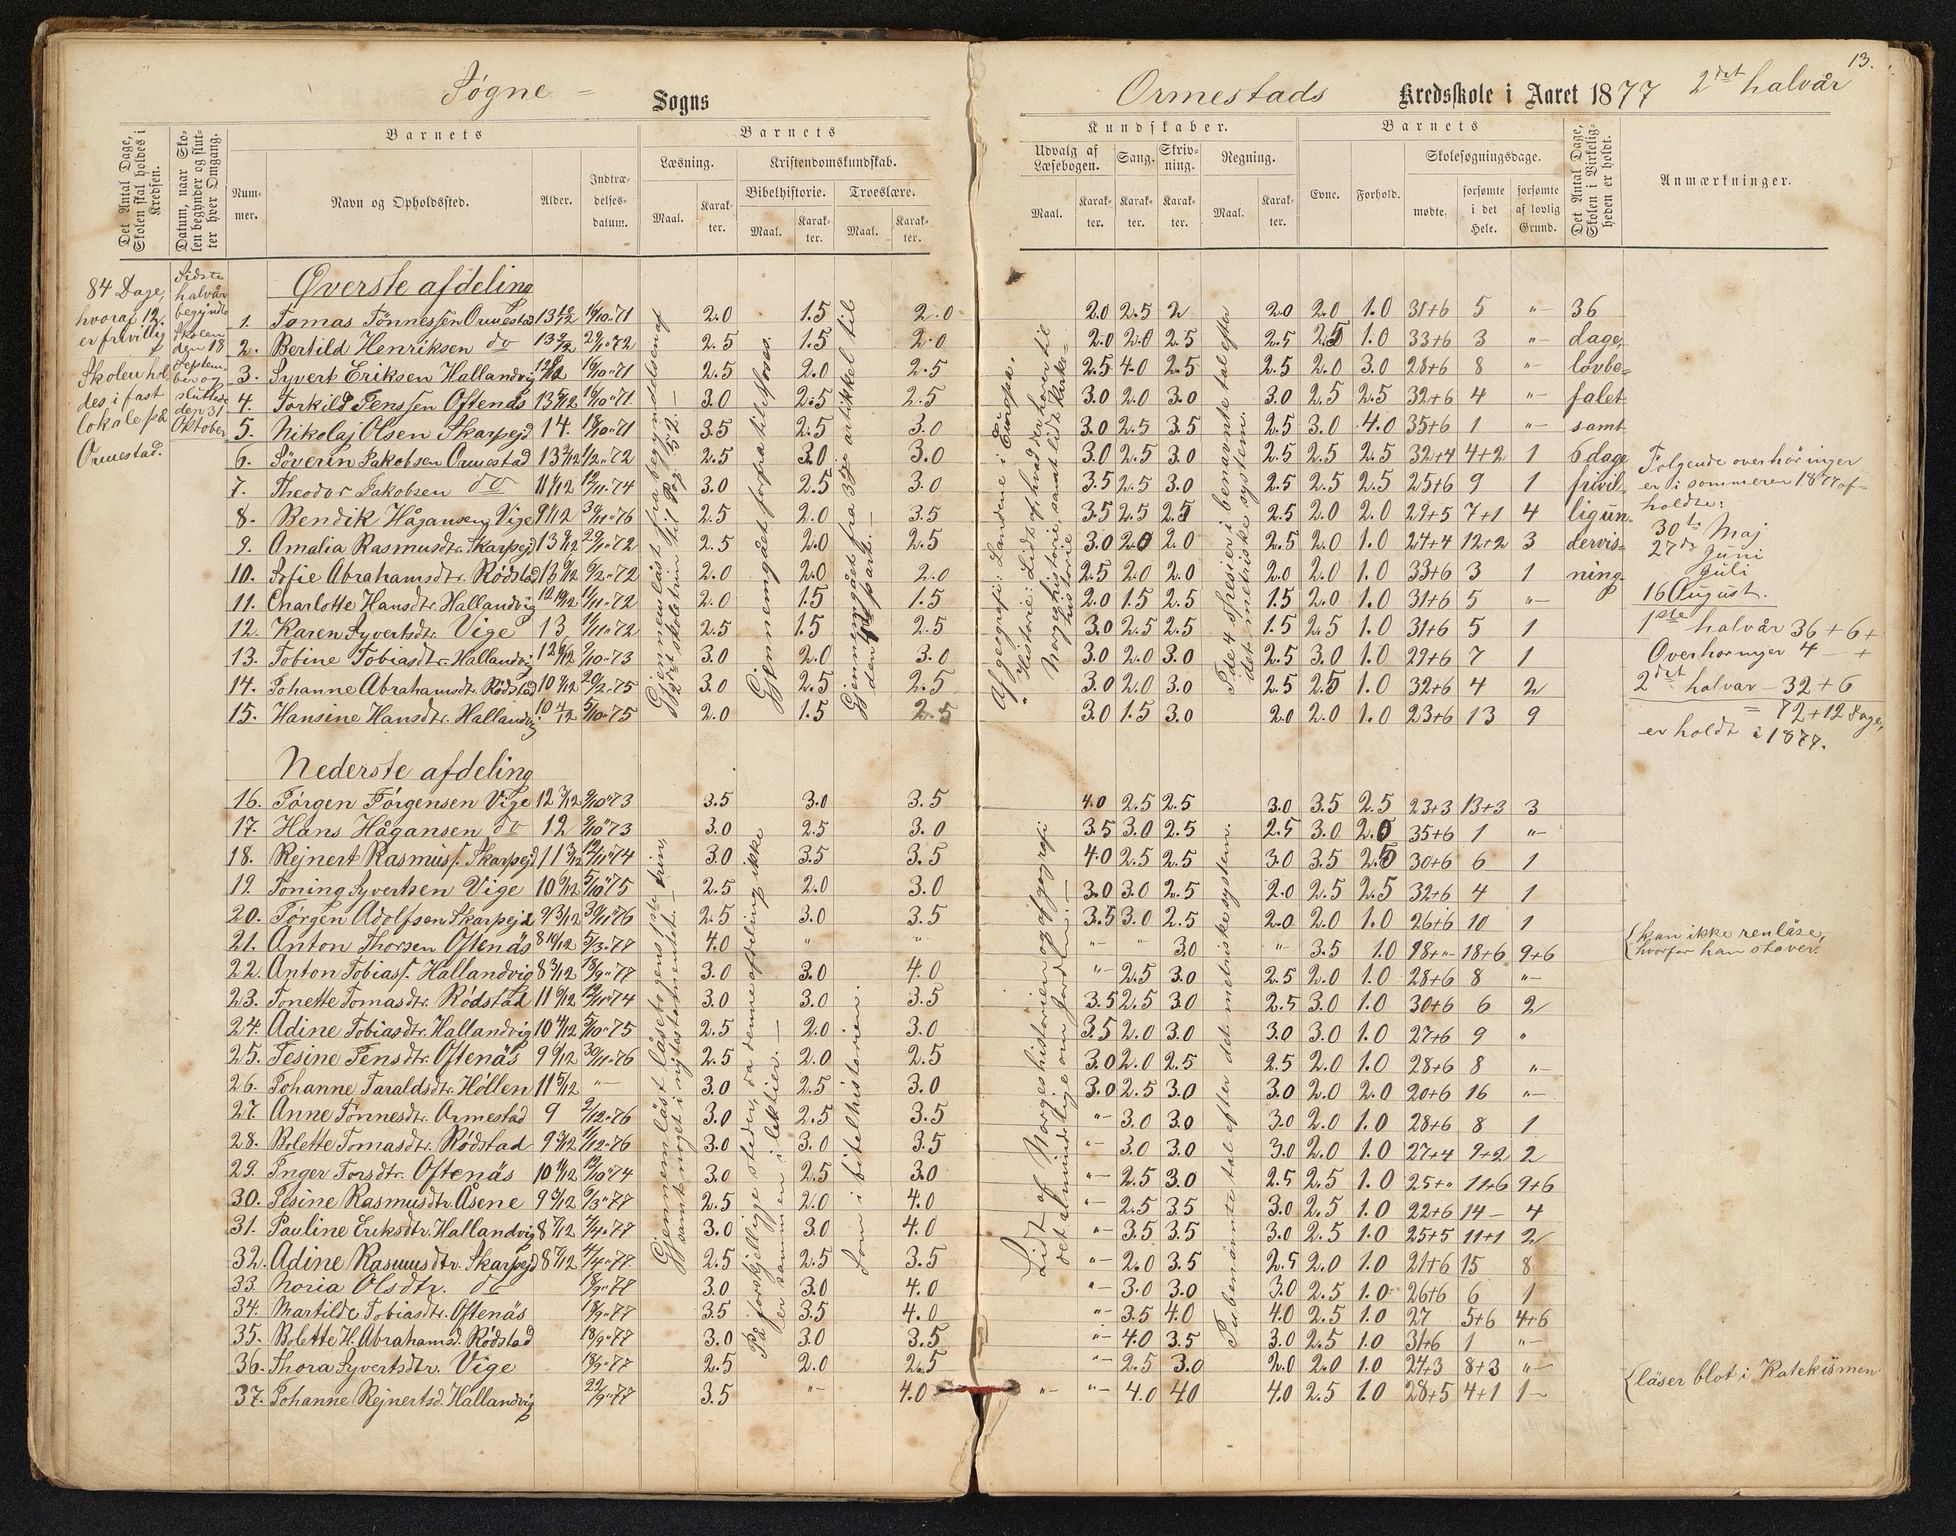 Søgne – Sogns
Ormestads Kredsskole i Aaret 1877 2det halvår
13.
Det Antal Dage, Skolen skal holdes i Kredsen.
Datum, naar Skolen begynder og slutter hver Omgang.
Barnets
Nummer.
Navn og Opholdssted.
Alder.
Indtrædelsesdatum.
Barnets
Læsning.
Maal.
Karakter.
Kristendomskundskab.
Bibelhistorie.
Maal.
Karakter.
Troeslære.
Maal.
Karakter.
Kundskaber.
Udvalg af Læsebogen.
Maal.
Karakter.
Sang.
Karakter.
Skrivning.
Karakter.
Regning.
Maal.
Karakter.
Barnets
Evne.
Forhold.
Skolesøgningsdage.
mødte.
forsømte i det Hele.
forsømte af lovlig Grund.
Det Antal Dage, Skolen i Virkeligheden er holdt.
Anmærkninger.
84 Dage,
hvoraf 12
er frivillig
Skolen hol
des i fast
lokale på
Ormestad.
Sidste
halvår
begyndte
skolen
den 18
Septem-
ber og
sluttede
den 31
Oktober
Øverste afdeling
1. Tomas Tønnessen Ormestad 16/10"71 2.0 1.5 2.0 2.0 2.5 2 2.0 2.0 1.0 31+6 5 "- 36
2. Bertild Henriksen do 2.5 1.5 2.0 2.0 2.0 2.5 2.5 2.5 1.0 33+6 3 "- dage
3. Syvert Eriksen Hallandvig 16/10"71 2.5 2.0 2.5 2.5 4.0 2.5 2.5 2.0 3.0 28+6 8 "- lovbe=
4. Torkild Jenssen Oftenäs 16/10"71 3.0 2.5 2.5 3.0 2.0 3.0 3.0 2.5 2.5 32+6 4 "- falet
5. Nikolaj Olsen Skarpejd 14. 3.5 2.5 3.0 3.0 2.5 3.5 2.5 3.0 4.0 35+6 1 "- samt
6. Søverin Jakobsen Ormestad 13 2/12 2.5 3.0 3.0 3.0 2.5 3.0 2.5 2.5 2.5 32+4 4+2 1 6 dage
7. Theodor Jakobsen do 11 1/12 3.0 2.5 3.0 3.5 2.5 3.0 2.5 2.5 2.5 25+6 9 1 frivil-
8. Bendik Hågansen Vige 9 1/12 30/11"76 2.5 2.0 3.5 3.5 2.5 2.5 2.5 2.0 2.0 29+5 7+1 4 ligun-
9. Amalia Rasmusdtr. Skarpejd 2.5 2.0 2.5 3.0 2.0 2.0 2.5 2.0 1.0 24+4 12+2 3 dervis=
10. Sofie Abrahamsdtr. Rödstad 2.0 2.0 2.0 2.5 2.0 2.0 2.0 2.0 1.0 33+6 3 1 ning
11. Charlotte Hansdtr. Hallandvig 2.0 1.5 1.5 2.0 1.5 2.5 1.5 2.0 1.0 31+6 5 "-
12. Karen Syvertsdtr. Vige 13 2.5 1.5 2.5 3.0 2.5 2.5 1.5 2.5 1.0 31+6 5 1
13. Tobine Tobiasdtr. Hallandvig 3.0 2.0 3.0 3.0 2.0 3.0 2.5 3.0 1.0 29+6 7 1
14. Johanne Abrahamsdtr. Rödstad 20/2"75 3.0 2.5 2.5 3.0 2.0 3.0 2.5 2.5 1.0 32+6 4 2
15. Hansine Hansdtr. Hallandvig. 10 4/12 5/10"75 2.0 1.5 2.5 3.0 1.5 3.0 2.0 2.0 1.0 23+6 13 9
Nederste afdeling
16. Jörgen Jörgensen Vige 3.5 3.0 3.5 4.0 2.5 2.5 3.0 3.5 2.5 23+3 13+3 3
17. Hans Hågansen do 12 3.0 2.5 3.0 3.5 3.0 2.5 2.5 3.0 2.0 35+6 1 "-
18. Rejnert Rasmuss. Skarpejd 12/11"74 3.0 3.5 3.5 4.0 2.5 2.5 3.0 3.5 2.5 30+6 6 1
19. Toning Syvertsen Vige 10 6/12 5/10"75 2.5 2.0 3.0 3.0 3.0 2.5 2.0 2.5 2.5 32+6 4 1
20. Jörgen Adolfsen Skarpejd 9 3/12 30/11"76 2.5 3.0 3.5 3.5 3.0 2.5 2.0 2.0 1.0 26+6 10 1
21. Anton Thorsen Oftenäs 8 10/12 5/3"77 4.0 " " "- " 3.0 "- 3.5 1.0 18+"- 18+6 9+6
22. Anton Tobiass. Hallandvig 8 3/12 18/9"77 3.0 3.0 4.0 "- 2.5 3.0 2.5 2.0 1.0 28+6 8 "-
23. Tonette Tomasdtr. Rödstad 12/11"74 3.0 3.0 3.5 3.5 2.5 3.0 2.5 3.0 1.0 30+6 6 2
24. Adine Tobiasdtr. Hallandvig 10 4/12 5/10"75 2.5 2.0 3.0 3.5 2.0 3.0 3.0 3.0 1.0 27+6 9 "
25. Jesine Jensdtr. Oftenäs 30/11"76 2.5 2.0 2.5 3.0 2.0 2.5 2.5 2.0 1.0 28+6 8 "-
26. Johanne Taraldsdtr. Höllen 11 5/12 "- 3.0 2.5 3.0 3.0 2.5 3.0 3.0 2.0 2.0 20+6 16 "-
27. Anne Tönnesdtr. Ormestad 9 3.0 2.5 3.5 "- 3.0 3.0 3.0 2.0 1.0 28+6 8 1
28. Bolette Tomasdtr. Rödstad 9 3/12 3.0 3.0 3.5 "- 3.0 3.0 3.0 2.0 1.0 27+4 9+2 2
29. Inger Torsdtr. Oftenäs 3.0 2.5 3.0 "- 2.5 3.0 2.5 2.5 1.0 25+" 11+6 9+6
30. Jesine Rasmusdtr. Åsene 9 3/12 2.5 2.0 4.0 "- 2.5 3.5 3.0 2.5 1.0 22+6 14- 4
31. Pauline Eriksdtr. Hallandvig 8 7/12 4/4"77 3.0 3.0 4.0 "- 3.5 3.5 3.0 2.5 1.0 25+5 11+1 2
32. Adine Rasmusdtr. Skarpejd 8 7/12 4/4"77 2.5 2.5 3.5 "- 2.0 3.5 2.5 2.0 1.0 21+6 15 8
33. Noria Olsdtr. do 18/9"77 3.0 3.0 4.0 "- 3.0 3.0 3.0 2.5 1.0 26+6 6 1
34. Martilde Tobiasdtr. Oftenäs 18/9"77 3.5 3.5 4.0 "- 3.5 4.0 4.0 2.5 1.0 27 5+6 4+6
35. Bolette H. Abrahamsd. Rödstad 18/9"77 3.0 3.0 3.5 "- 4.0 3.5 3.0 2.5 1.0 31+6 1 "-
36. Thora Syvertsdtr. Vige 18/9"77 2.5 2.0 2.5 "- 2.5 3.0 2.0 2.0 1.0 24+3 8+3 "-
37. Johanne Rejnertsd. Hallandvig 22/9"77 3.5 "- 4.0 "- "- 4.0 4.0 4.0 2.5 1.0 28+5 4+1 1-
Gjennemläst fra begyndelsen af
2det skoletrin til Pag. 52.-
Gjennemgået forfra til
Gjennemgået fra 3die artikkel til
den part.-
Af geografi: Landene i Europa.
" Historie: Lidt af hvad der hører til
Norgeshistorie, samt lidt kirke=
historie
De 4 Spesier i benävnte tal efter
det metriske system.
Gjennemläst läsebogens 1ste trin
samt noget i nytestamentet.-
På forskjellige steder, da denne afdeling ikke
er sammen i lektier.-
Som i bibelhistorien.
Lidt af Norgeshistorien og af geografi
det almindelige om Jorden.-
I ubenämnte tal efter det metriske system.
Følgende overhøringer
er i sommeren 1877 af-
holdte:
30te Maj
27de Juni
Juli
16 August.
1ste halvår 36+6+
Overhøringer 4 - +
2det halvår - 32+6
= 72+12 Dage,
er holdt i 1877.
{kan ikke renläse,
hvorfor han staver.
{läser blot i Katekismen